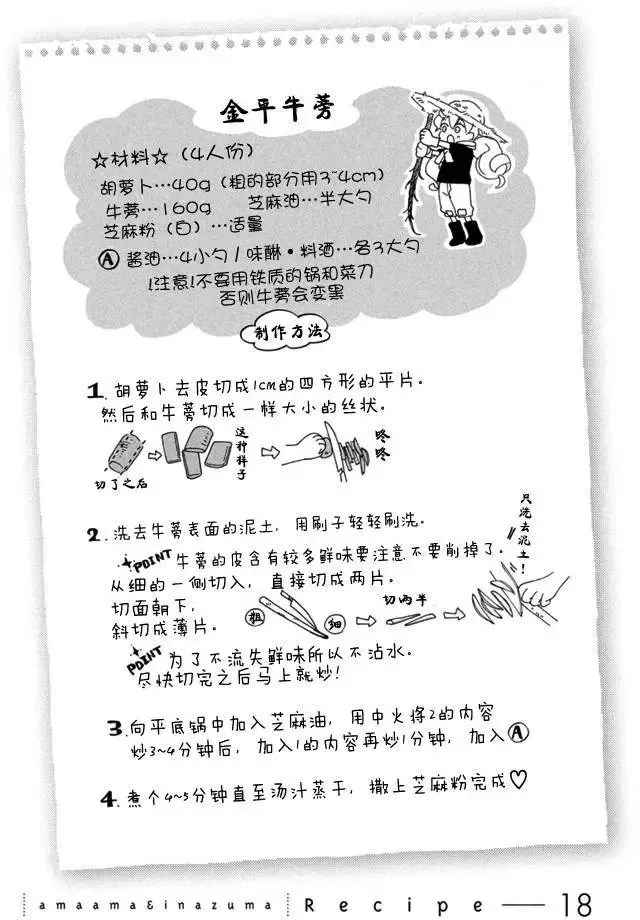 金平牛蒡
☆材料☆（4人份）
胡萝卜…40g（粗的部分用3~4cm）
牛蒡…160g 芝麻油…半大勺
芝麻粉（白）…适量
Ⓐ 酱油…4小勺/味醂・料酒…各3大勺
!注意!不要用铁质的锅和菜刀
否则牛蒡会变黑
制作方法
1. 胡萝卜去皮切成1cm的四方形的平片。
然后和牛蒡切成一样大小的丝状。
切了之后
这种样子
咚咚
2. 洗去牛蒡表面的泥土，用刷子轻轻刷洗。
只洗去泥土！
POINT 牛蒡的皮含有较多鲜味要注意不要削掉了。
从细的一侧切入，直接切成两片。
切面朝下，
斜切成薄片。
粗
细
切两半
POINT 为了不流失鲜味所以不沾水。
尽快切完之后马上就炒!
3. 向平底锅中加入芝麻油，用中火将2的内容
炒3~4分钟后，加入1的内容再炒1分钟，加入Ⓐ
4. 煮个4~5分钟直至汤汁蒸干，撒上芝麻粉完成♡
amaama&inazuma Recipe — 18